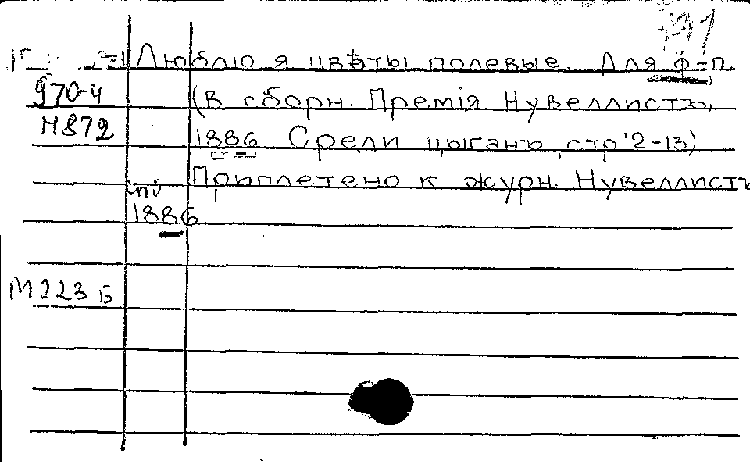 Люблю я цвѣты полевые. Для ф-п.
970-4
(В сборн. Премія Нувеллистъ,
Н872
1886 Среди цыганъ, стр. 2-13)
Приплетено к журн. Нувеллистъ
1886
М223 Б